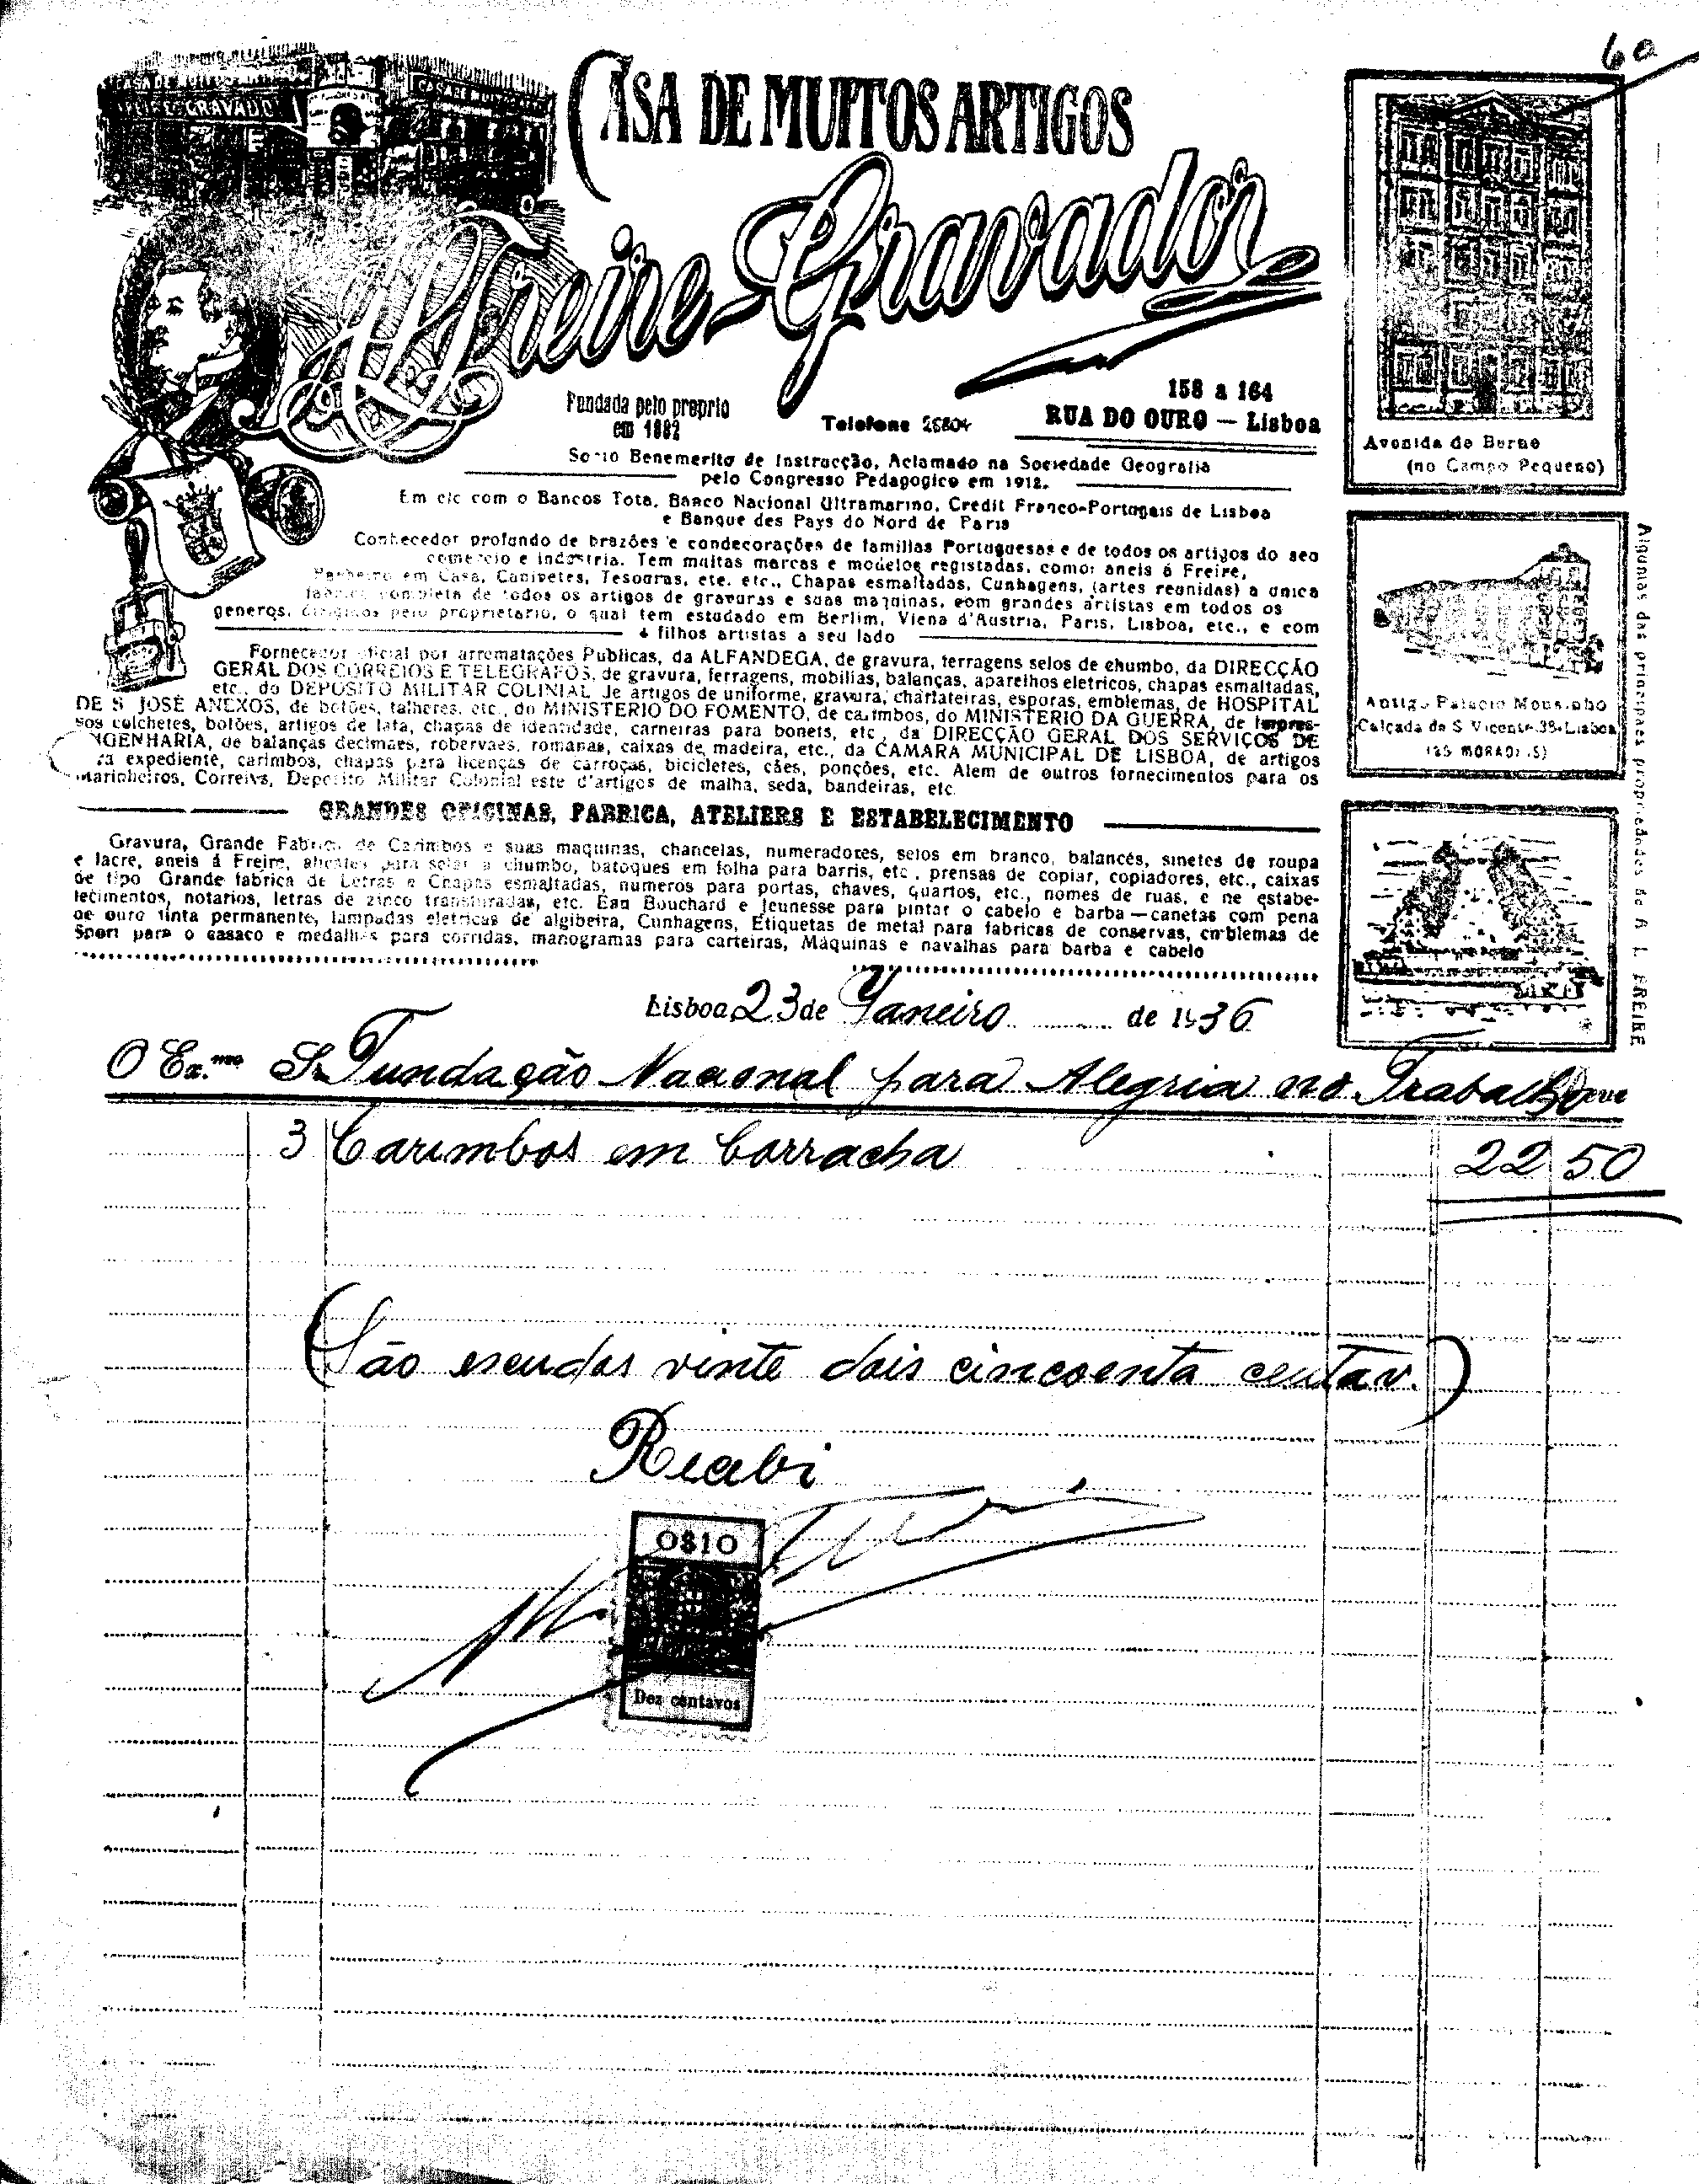 6a
CASA DE MUITOS ARTIGOS
A. Freire-Gravador
Fundada pelo proprio
em 1882
Telefone 26804
158 a 164
RUA DO OURO — Lisboa
Socio Benemerito de Instrucção, Aclamado na Sociedade Geografia
pelo Congresso Pedagogico em 1912.
Em c/c com o Bancos Tota, Banco Nacional Ultramarino, Credit Franco-Portugais de Lisboa
e Banque des Pays do Nord de Paris
Conhecedor profundo de brazões e condecorações de familias Portuguesas e de todos os artigos do seo
comercio e industria. Tem muitas marcas e modelos registadas, como: aneis á Freire,
em Casa, Canivetes, Tesouras, etc. etc., Chapas esmaltadas, Cunhagens, (artes reunidas) a unica
fabrica completa de todos os artigos de gravuras e suas maquinas, com grandes artistas em todos os
generos, dirigidos pelo proprietario, o qual tem estudado em Berlim, Viena d'Austria, Paris, Lisboa, etc., e com
4 filhos artistas a seu lado
Fornecedor oficial por arrematações Publicas, da ALFANDEGA, de gravura, ferragens selos de chumbo, da DIRECÇÃO
GERAL DOS CORREIOS E TELEGRAFOS, de gravura, ferragens, mobilias, balanças, aparelhos eletricos, chapas esmaltadas,
etc., do DEPOSITO MILITAR COLINIAL de artigos de uniforme, gravura, charlateiras, esporas, emblemas, de HOSPITAL
DE S JOSÉ ANEXOS, de botões, talheres, etc., do MINISTERIO DO FOMENTO, de carimbos, do MINISTERIO DA GUERRA, de Impres-
sos colchetes, botões, artigos de lata, chapas de identidade, carneiras para bonets, etc., da DIRECÇÃO GERAL DOS SERVIÇOS DE
ENGENHARIA, de balanças decimaes, robervaes, romanas, caixas de madeira, etc., da CAMARA MUNICIPAL DE LISBOA, de artigos
expediente, carimbos, chapas para licenças de carroças, bicicletes, cães, ponções, etc. Alem de outros fornecimentos para os
marinheiros, Correios, Deposito Militar Colonial este d'artigos de malha, seda, bandeiras, etc.
GRANDES OFICINAS, FABRICA, ATELIERS E ESTABELECIMENTO
Gravura, Grande Fabrica de Carimbos e suas maquinas, chancelas, numeradores, selos em branco, balancés, sinetes de roupa
e lacre, aneis á Freire, alicates para selar a chumbo, batoques em folha para barris, etc., prensas de copiar, copiadores, etc., caixas
de tipo Grande fabrica de Letras e Chapas esmaltadas, numeros para portas, chaves, quartos, etc., nomes de ruas, e ne estabe-
lecimentos, notarios, letras de zinco transfuradas, etc. Eau Bouchard e Jeunesse para pintar o cabelo e barba — canetas com pena
de ouro tinta permanente, lampadas eletricas de algibeira, Cunhagens, Etiquetas de metal para fabricas de conservas, emblemas de
Sport para o casaco e medalhas para corridas, manogramas para carteiras, Máquinas e navalhas para barba e cabelo
Avenida de Berne
(no Campo Pequeno)
Antigo Palacio Mousinho
Calçada de S Vicente-35-Lisboa
Algumas das principaes propriedades de A L FREIRE
Lisboa 23 de Janeiro de 1936
O Ex.mo Sr. Fundação Nacional para Alegria no Trabalho Deve
3 Carimbos em borracha 22 50
(São escudos vinte dois cincoenta centav.)
Recebi
0$10
Dez centavos